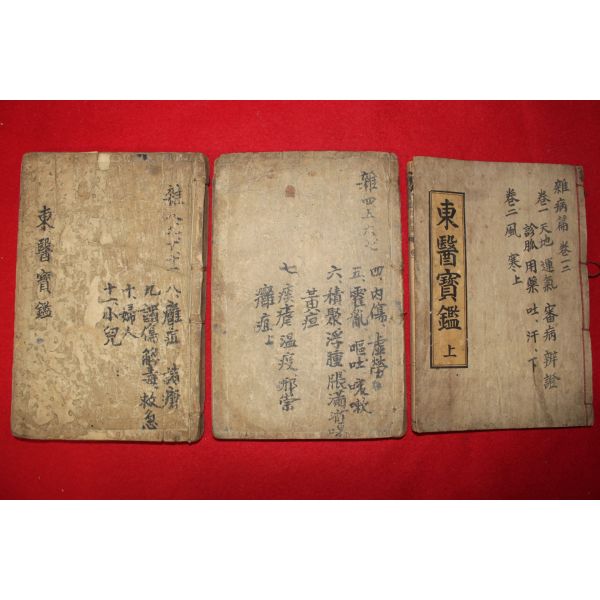 雜病篇 卷一二
卷一 天地運氣 審病 辨證
診脈 用藥 吐、汗、下
卷二 風 寒上
東醫寶鑑 上
雜 四五六七
四、內傷 虛勞
五、霍亂 嘔吐 咳嗽
六 積聚 浮腫 脹滿 消渴
黃疸
七、痎瘧 溫疫 邪祟
癰疽上
雜 八九十十一
八 癰疽 諸瘡
九 諸傷 解毒 救急
十、婦人
十一、小兒
東醫寶鑑